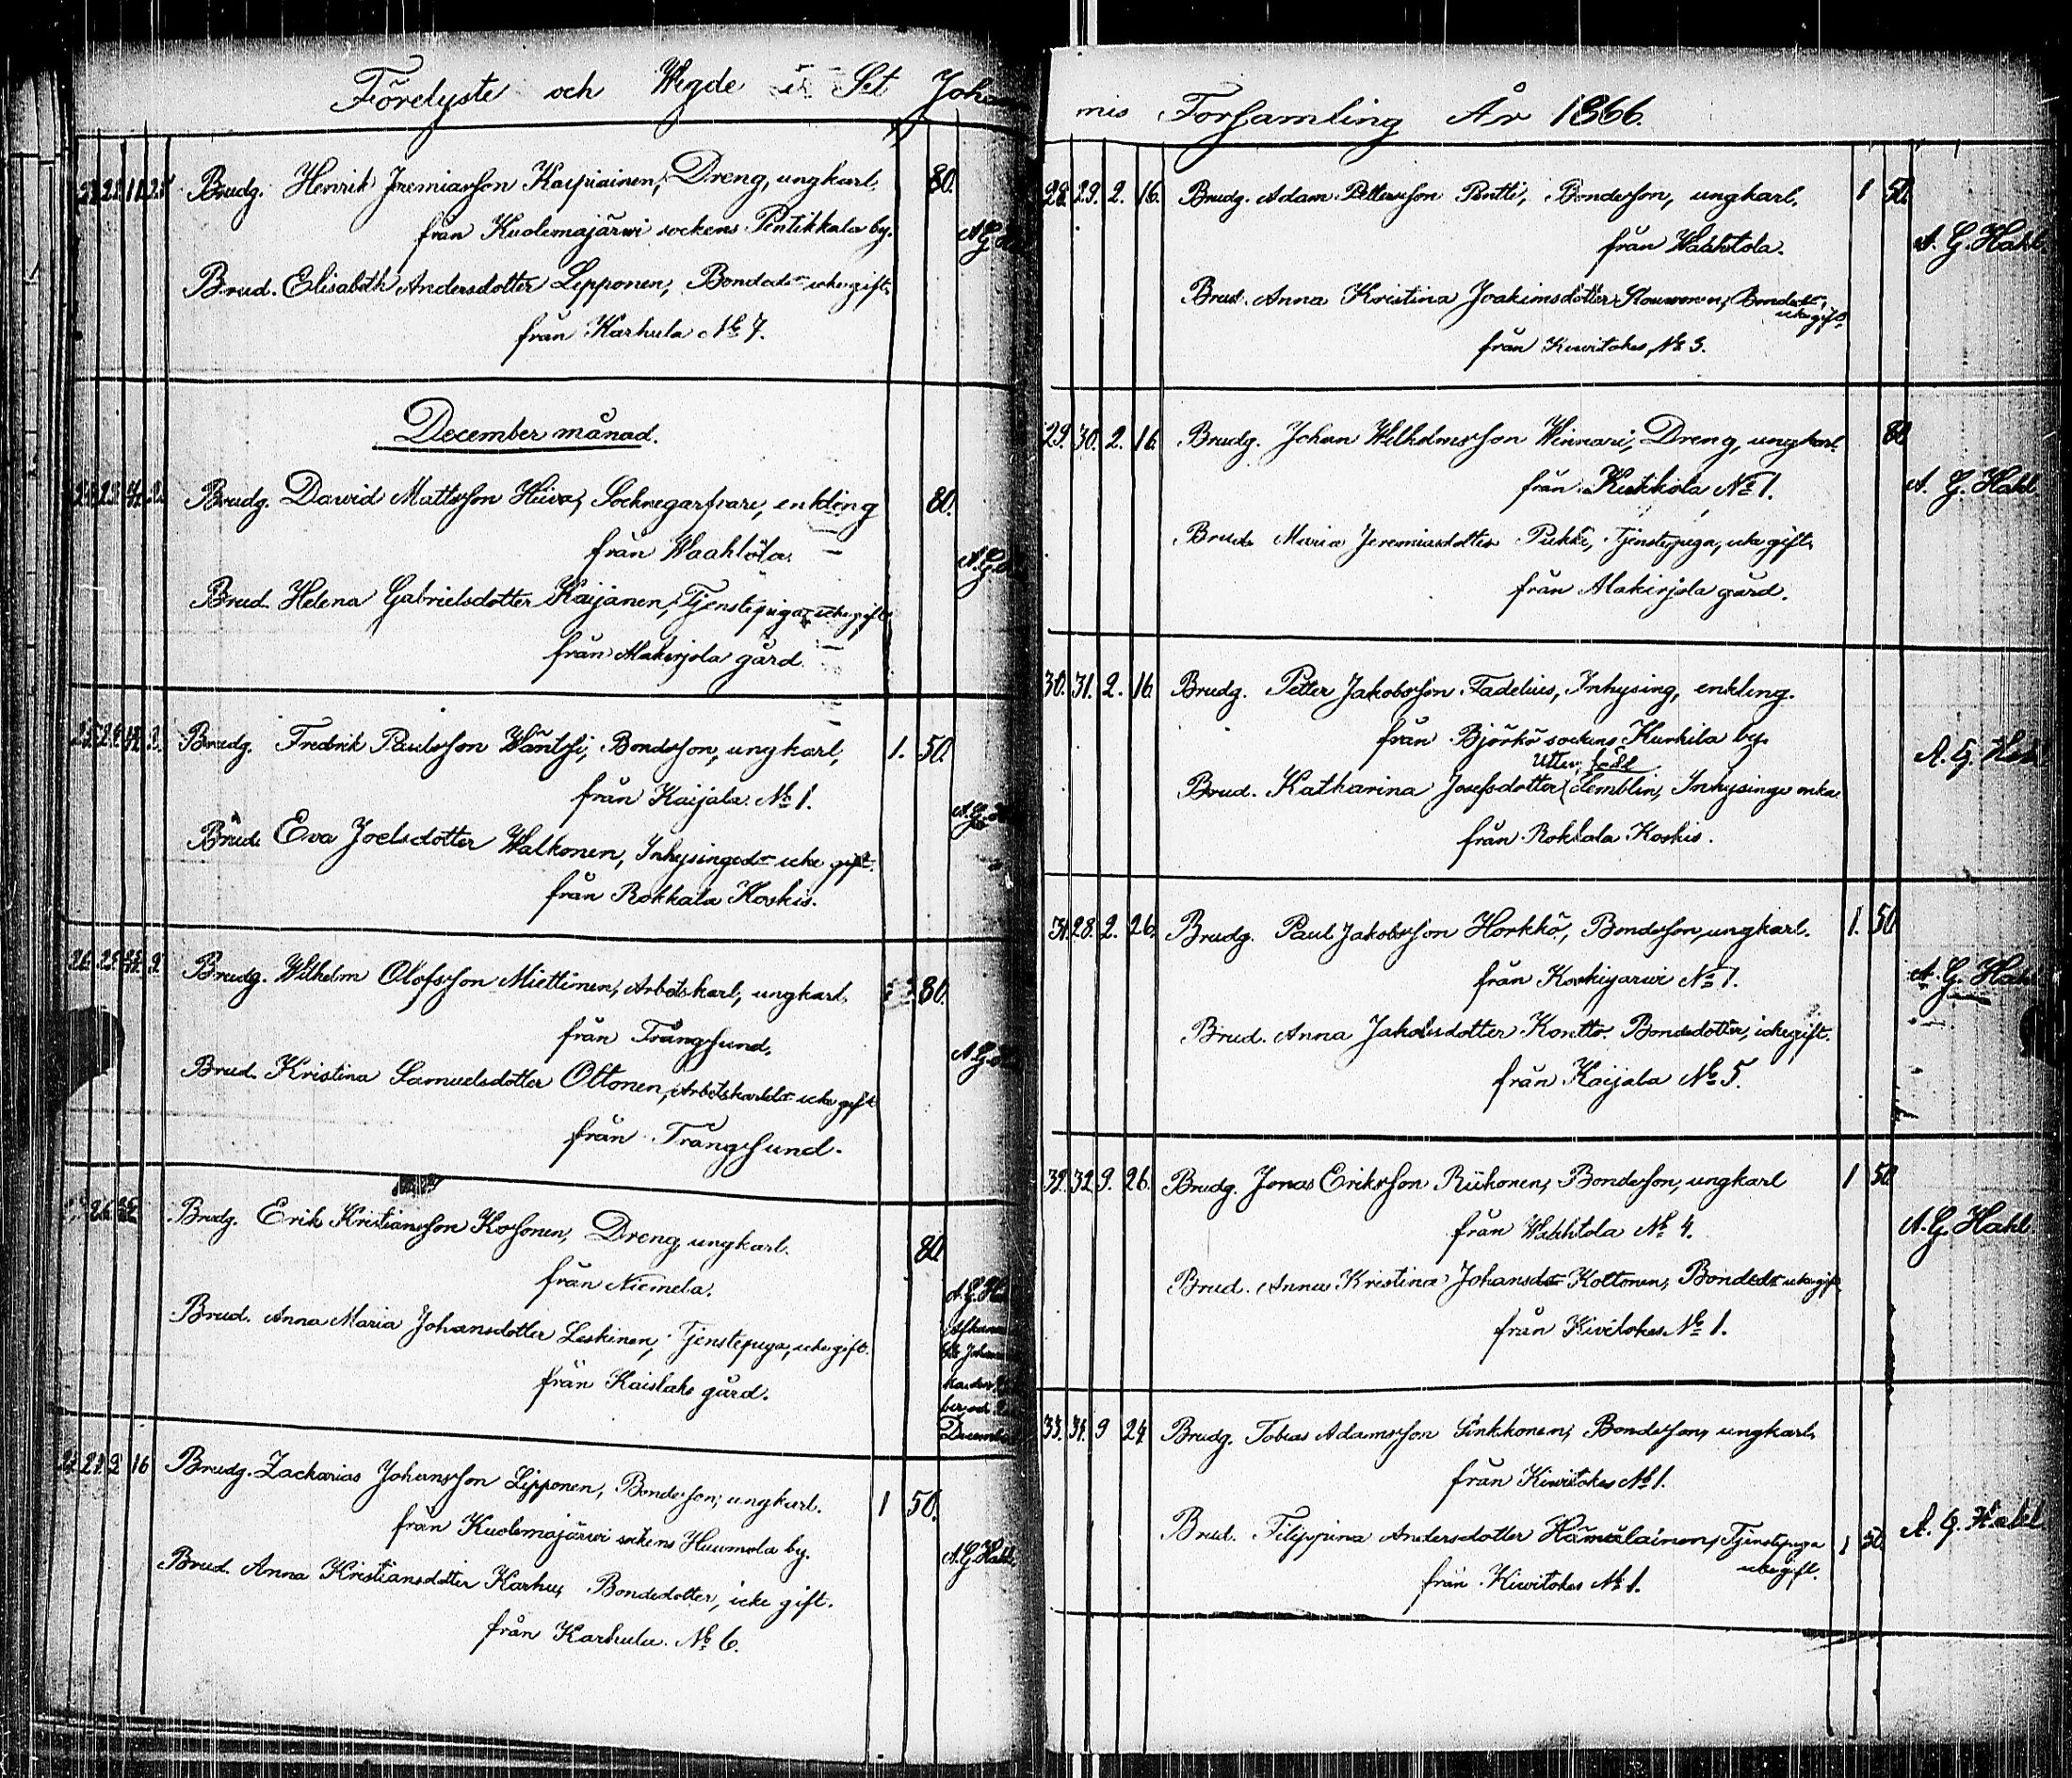 Förelyste och Wigde i Sct Johan
80.
Brudg. Henrik Jeremiasson Karpiainen, Dreng, ungkarl,
från Kuolemajärwi sockens Pentikkala by.
A. G.
Brud. Elisabeth Andersdotter Lipponen, Bondedr icke gift,
från Karhula No 7.
December månad.
Brudg. Dawid Mattsson Hiiva, Socknegarfvare, enkling 80.
från Waahtola.
A. G.
Brud. Helena Gabrielsdotter Kaijanen, Tjenstepiga, icke gift
från Alakirjola gård.
Brudg. Fredrik Paulsson Wäntsi, Bondeson, ungkarl, 1. 50.
från Kaijala No 1.
A. G.
Brud. Eva Joelsdotter Walkonen, Inhysingedr icke gift.
från Rokkala Koskis.
Brudg. Wilhelm Olofsson Miettinen, Arbetskarl, ungkarl, 80.
från Trångsund.
A. G.
Brud. Kristina Samuelsdotter Oltonen, Arbetskarldr icke gift
från Trångsund.
Brudg. Erik Kristiansson Kosonen, Dreng, ungkarl. 80
från Niemela.
A. G.
Brud. Anna Maria Johansdotter Leskinen, Tjenstepiga, icke gift.
från Kaislaks gård.
December
27. 2 16 Brudg. Zacharias Johansson Lipponen, Bondeson, ungkarl. 1 50.
från Kuolemajärwi sockens Huumola by.
A. G. Hahl
Brud. Anna Kristiansdotter Karhu, Bondedotter, icke gift.
från Karhula No 6.
nis Församling År 1866.
28. 29. 2. 16. Brudg. Adam Pettersson Pentti, Bondeson, ungkarl. 1 50.
från Waahtola.
A. G. Hahl
Brud. Anna Kristina Joakimsdotter Kouwonen, Bondedr,
icke gift.
från Kiwitokes No 3.
29. 30. 2. 16 Brudg. Johan Wilhelmsson Winnari, Dreng, ungkarl. 80
från Kukkola No 1.
A. G. Hahl
Brud. Maria Jeremiasdotter Pukki, Tjenstepiga, icke gift.
från Alakirjola gård.
30. 31. 2. 16 Brudg. Petter Jakobsson Fadelius, Inhysing, enkling.
från Björkö sockens Kurkila by.
A. G. Hahl
Utter, född
Brud. Katharina Josefsdotter Semblin, Inhysinge enka
från Rokkala Koskis.
31. 28. 2. 26. Brudg. Paul Jakobsson Horkkö, Bondeson, ungkarl. 1. 50
från Koskijärwi No 1.
A. G. Hahl
Brud. Anna Jakobsdotter Kontto Bondedotter, icke gift.
från Kaijala No 5.
32. 32 9. 26. Brudg. Jonas Eriksson Riikonen, Bondeson, ungkarl 1 50
från Waahtola No 4.
A. G. Hahl
Brud. Anna Kristina Johansdr Koltonen, Bondedr icke gift.
från Kiwitokes No 1.
33. 34. 9 24 Brudg. Tobias Adamsson Sinkkonen, Bondeson, ungkarl.
från Kiwitokes No 1.
A. G. Hahl
Brud. Filippina Andersdotter Hämäläinen, Tjenstepiga 1 50.
icke gift.
från Kiwitokes No 1.